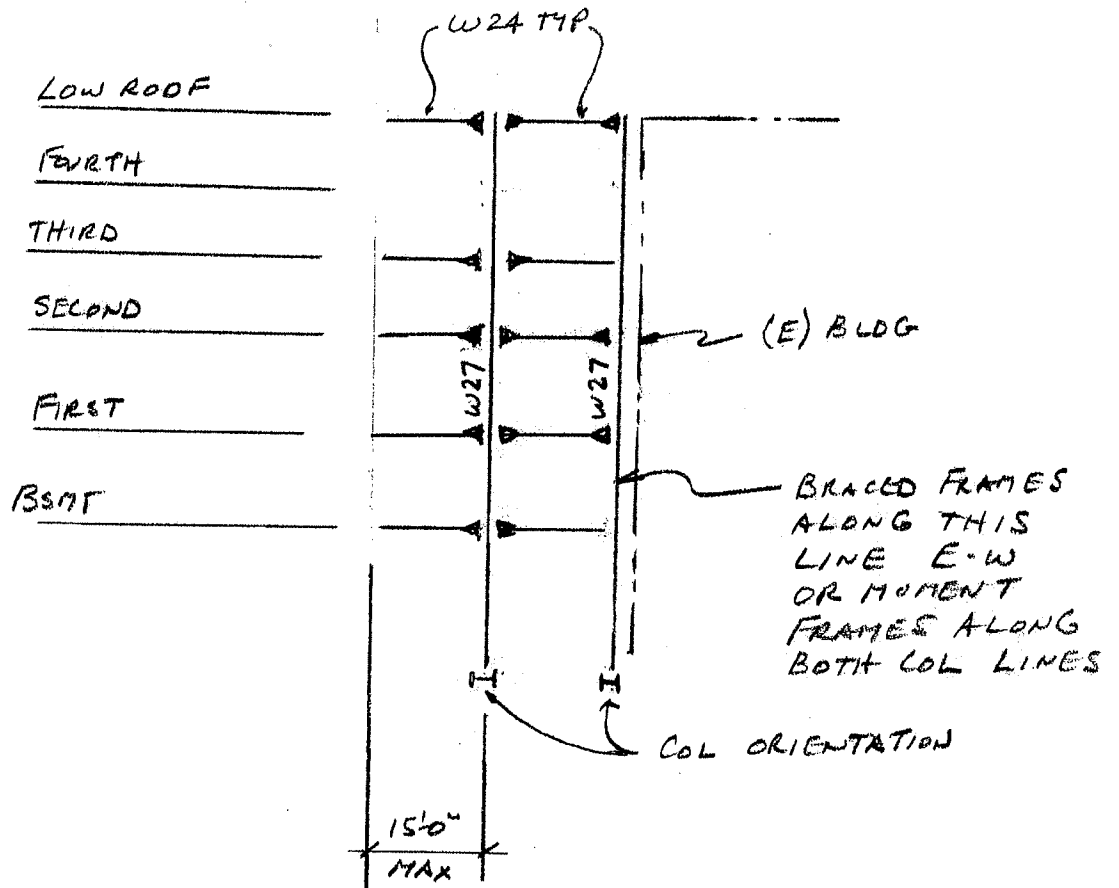 W24 TYP.
LOW ROOF
FOURTH
THIRD
SECOND
(E) BLDG
W27
W27
FIRST
BRACED FRAMES
ALONG THIS
LINE E-W
OR MOMENT
FRAMES ALONG
BOTH COL LINES
BSMT
COL ORIENTATION
15'0"
MAX